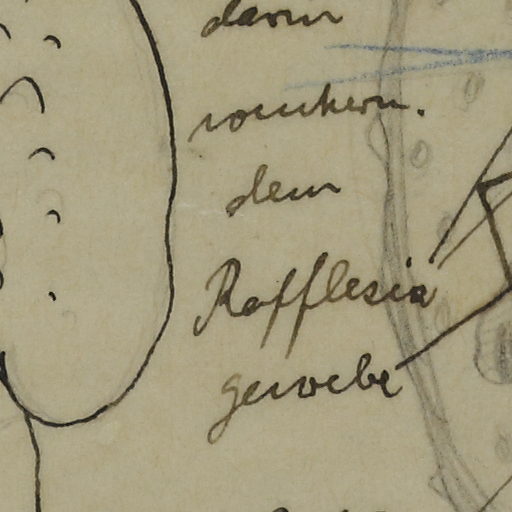 darin
wuchern.
dem
Rafflesia
gewebe